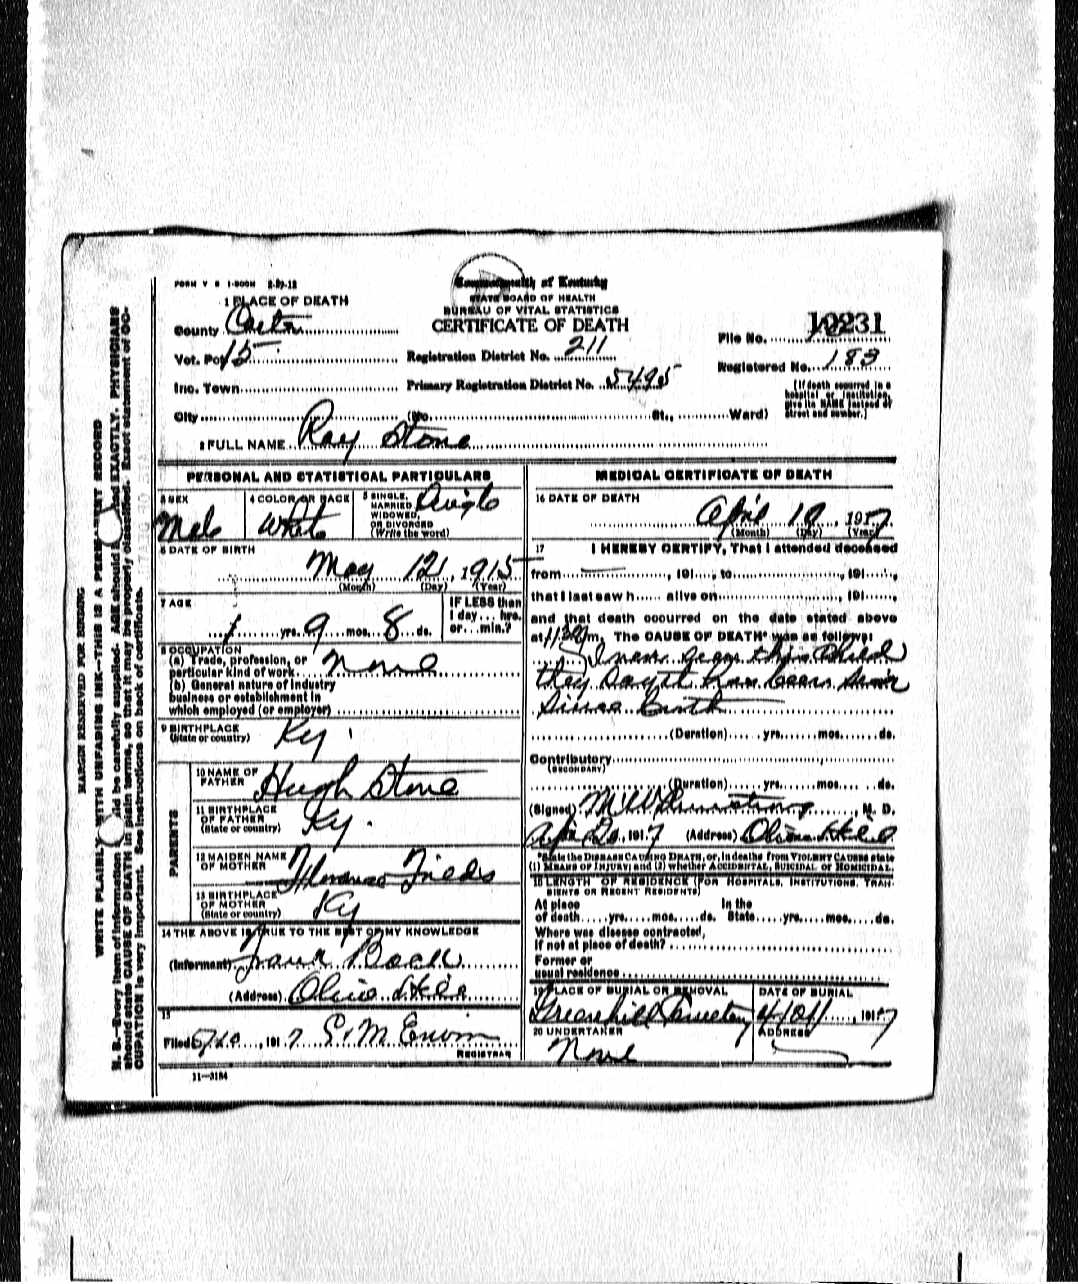 FORM V S 1-500M 2-29-12
Commonwealth of Kentucky
STATE BOARD OF HEALTH
BUREAU OF VITAL STATISTICS
CERTIFICATE OF DEATH
1 PLACE OF DEATH
County
Vot. Pct 15
Inc. Town
City (No. St., Ward)
Registration District No. 211
Primary Registration District No. 5495
File No. 10231
Registered No. 183
(If death occurred in a
hospital or institution,
give its NAME instead of
street and number.)
2 FULL NAME Ray Stone
PERSONAL AND STATISTICAL PARTICULARS
3 SEX
Male
4 COLOR OR RACE
White
5 SINGLE,
MARRIED,
WIDOWED,
OR DIVORCED
(Write the word)
Single
6 DATE OF BIRTH
May 12, 1915
(Month) (Day) (Year)
7 AGE
1 yrs. 9 mos. 8 ds.
IF LESS than
1 day... hrs.
or... min.?
8 OCCUPATION
(a) Trade, profession, or
particular kind of work None
(b) General nature of industry
business or establishment in
which employed (or employer)
9 BIRTHPLACE
(State or country) Ky.
PARENTS
10 NAME OF
FATHER Hugh Stone
11 BIRTHPLACE
OF FATHER
(State or country) Ky.
12 MAIDEN NAME
OF MOTHER Florence Fields
13 BIRTHPLACE
OF MOTHER
(State or country) Ky
14 THE ABOVE IS TRUE TO THE BEST OF MY KNOWLEDGE
(Informant)
(Address) Olive Hill
15
Filed , 191 7
REGISTRAR
11-3184
MEDICAL CERTIFICATE OF DEATH
16 DATE OF DEATH
April 19, 1917
(Month) (Day) (Year)
17 I HEREBY CERTIFY, That I attended deceased
from , 191 , to , 191 ,
that I last saw h alive on , 191 ,
and that death occurred on the date stated above
at m. The CAUSE OF DEATH* was as follows:
I never seen this child
they say it has been
Since Birth
(Duration) yrs. mos. ds.
Contributory
(SECONDARY)
(Duration) yrs. mos. ds.
(Signed) , M. D.
, 191 7 (Address) Olive Hill
*State the DISEASE CAUSING DEATH, or, in deaths from VIOLENT CAUSES state
(1) MEANS OF INJURY; and (2) whether ACCIDENTAL, SUICIDAL or HOMICIDAL.
18 LENGTH OF RESIDENCE (FOR HOSPITALS, INSTITUTIONS, TRAN-
SIENTS OR RECENT RESIDENTS)
At place In the
of death yrs. mos. ds. State yrs. mos. ds.
Where was disease contracted,
if not at place of death?
Former or
usual residence
19 PLACE OF BURIAL OR REMOVAL
Greenhill Cemetery
DATE OF BURIAL
, 1917
20 UNDERTAKER
None
ADDRESS
MARGIN RESERVED FOR BINDING
WRITE PLAINLY WITH UNFADING INK—THIS IS A PERMANENT RECORD
N. B.—Every item of information should be carefully supplied. AGE should be stated EXACTLY. PHYSICIANS
should state CAUSE OF DEATH in plain terms, so that it may be properly classified. Exact statement of OC-
CUPATION is very important. See instructions on back of certificate.